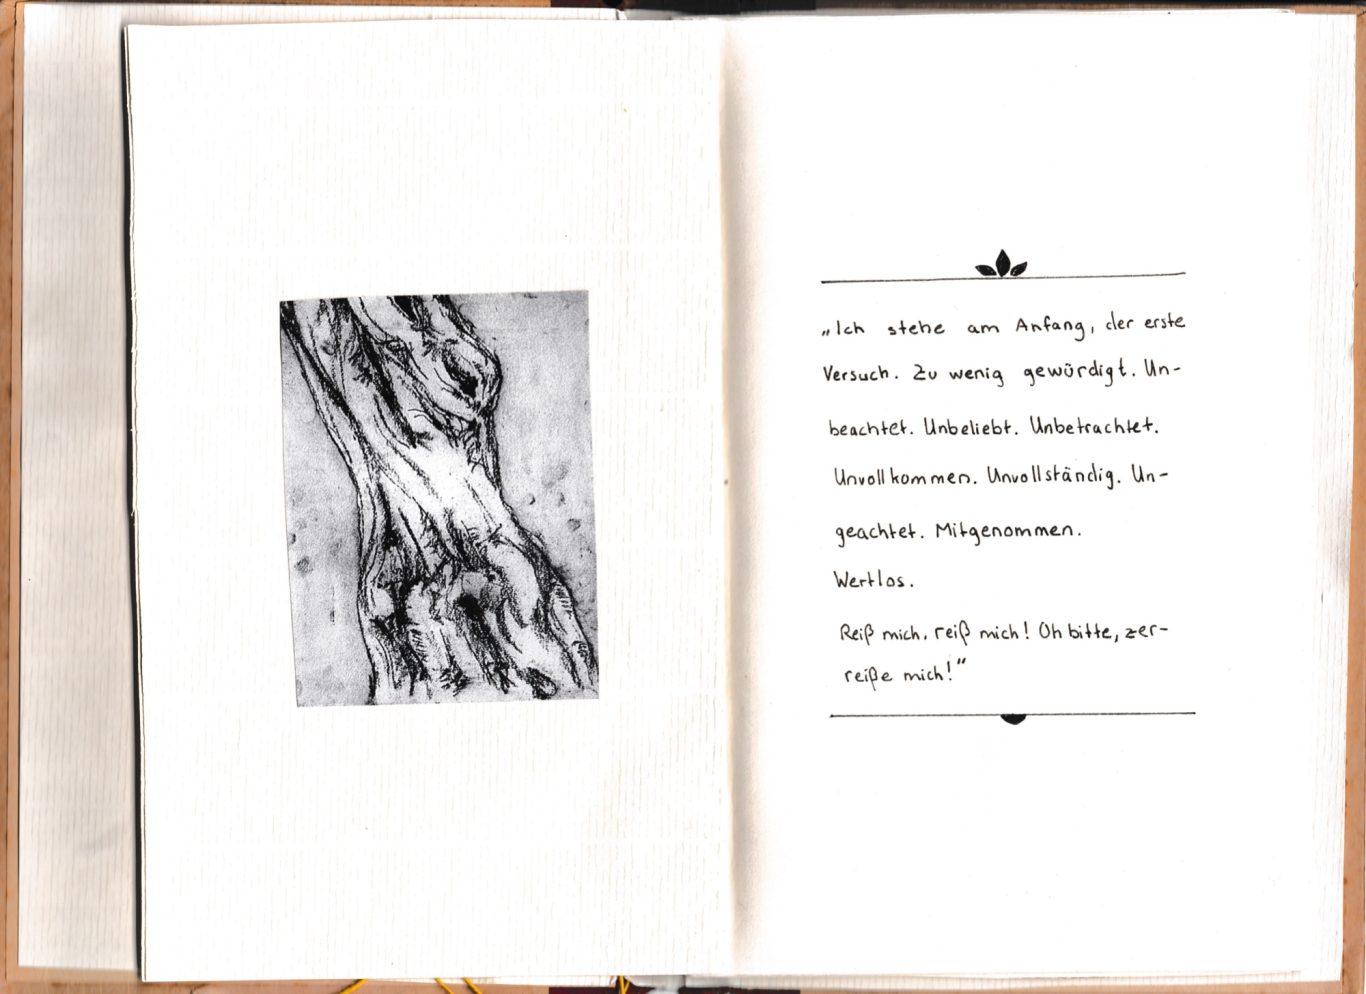 „Ich stehe am Anfang, der erste
Versuch. Zu wenig gewürdigt. Un-
beachtet. Unbeliebt. Unbetrachtet.
Unvollkommen. Unvollständig. Un-
geachtet. Mitgenommen.
Wertlos.
Reiß mich, reiß mich! Oh bitte, zer-
reiße mich!“